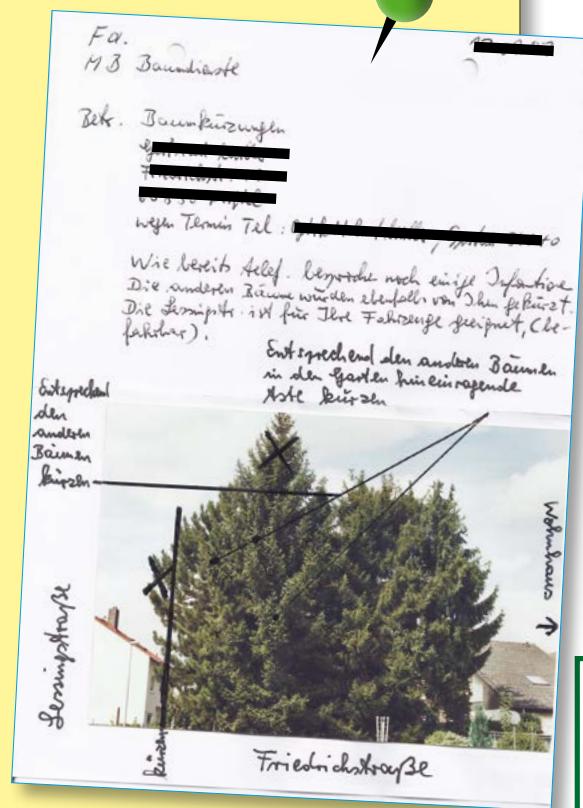 Fa.
MB Baumdienste
Betr. Baumkürzungen
wegen Termin Tel:
Wie bereits telef. besproche noch einige Infantione
Die anderen Bäume wurden ebenfalls von Ihn gekürzt.
Die Lessingstr. ist für Ihre Fahrzeuge geeignet, (be-
fahrbar).
Entsprechend den anderen Bäumen
in den Garten hineinragende
Äste kürzen
Entsprechend
den
anderen
Bäumen
kürzen
Wohnhaus
Lessingstraße
kürzen
Friedrichstraße